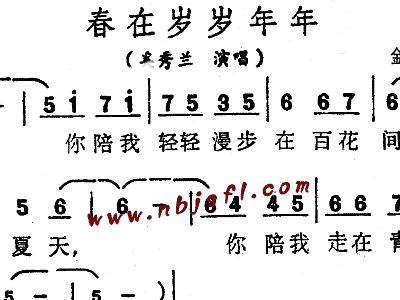 春在岁岁年年
秀兰 演唱)
5 i 7 i | 7 5 3 5 | 6 6 7 | 6
你陪我 轻轻 漫步 在 百花 间
www.nbjsfl.com
5 6 | 6 – | 6 4 4 5 | 6 6 6
夏 天, 你 陪我 走在 青
5 – | 5 – )